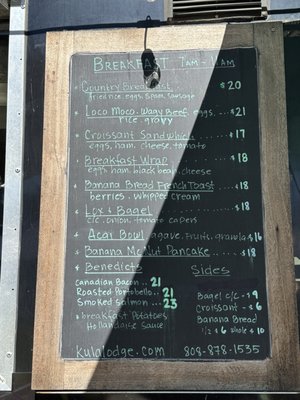 BREAKFAST 7AM - 11AM
Country Breakfast $20
fried rice, eggs, Spam, Sausage
* LOCO MOCO. Wagy Beef. eggs. $21
rice. gravy
* Croissant Sandwhich $17
eggs, ham, cheese, tomato
* Breakfast Wrap $18
eggs ham, black bean, cheese
* Banana Bread French Toast $18
berries. whipped cream
* LOX & Bagel $18
c/c, onion, tomato capers
* Acai Bowl agave, fruit, granola $16
* Banana McNut Pancake $18
* Benedicts
Canadian Bacon .. 21
Roasted Portobello .. 21
Smoked salmon ... 23
* breakfast Potatoes
Hollandaise sauce
Sides
Bagel c/c - $9
Croissant - $6
Banana Bread
1/2 $6 whole $10
kulalodge.com 808-878-1535